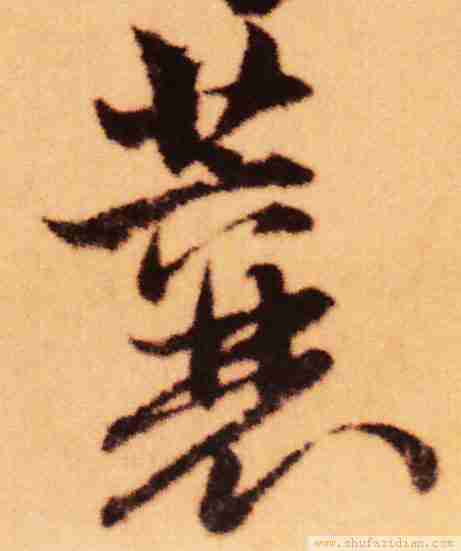 蘘
www.shufazidian.com